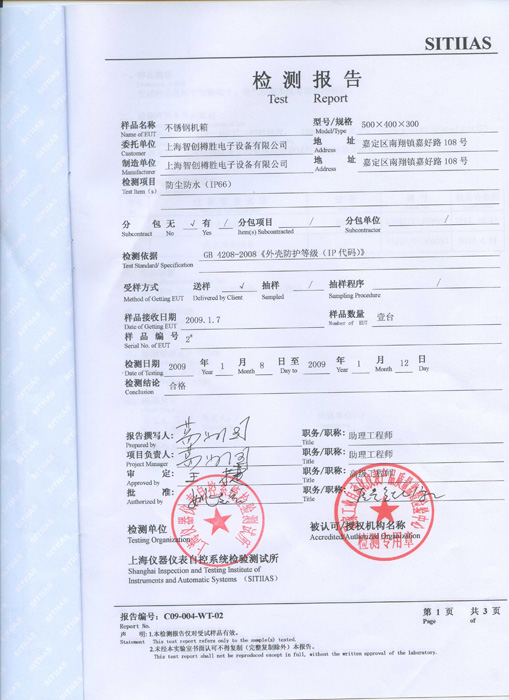 SITIIAS
检 测 报 告
Test Report
样品名称 不锈钢机箱 型号/规格 500×400×300
Name of EUT Model/Type
委托单位 上海智创樽胜电子设备有限公司 地 址 嘉定区南翔镇嘉好路 108 号
Customer Address
制造单位 上海智创樽胜电子设备有限公司 地 址 嘉定区南翔镇嘉好路 108 号
Manufacturer Address
检测项目 防尘防水（IP66）
Test Item (s)
分 包 无 √ 有 / 分包项目 / 分包单位 /
Subcontract No Yes Item(s) Subcontracted Subcontractor
检测依据 GB 4208-2008《外壳防护等级（IP 代码）》
Test Standard/ Specification
受样方式 送样 √ 抽样 / 抽样程序 /
Method of Getting EUT Delivered by Client Sampled Sampling Procedure
样品接收日期 2009.1.7 样品数量 壹台
Date of Getting EUT Number of EUT
样 品 编 号 2#
Serial No. of EUT
检测日期 2009 年 1 月 8 日 至 2009 年 1 月 12 日
Date of Testing Year Month Day to Year Month Day
检测结论 合格
Conclusion
报告撰写人: 职务/职称: 助理工程师
Prepared by Title
项目负责人: 职务/职称: 助理工程师
Project Manager Title
审 定: 职务/职称: 高级工程师
Approved by Title
批 准: 职务/职称:
Authorized by Title
检测单位 被认可/授权机构名称
Testing Organization Accredited/Authorized Organization
检测专用章
上海仪器仪表自控系统检验测试所
Shanghai Inspection and Testing Institute of
Instruments and Automatic Systems （SITIIAS）
报告编号: C09-004-WT-02 第 1 页 共 3 页
Report No. Page of
声 明: 1.本检测报告仅对受试样品有效。
Statement This test report refers only to the sample(s) tested.
2.未经本实验室书面认可不得复制（完整复制除外）本报告。
This test report shall not be reproduced except in full, without the written approval of the laboratory.